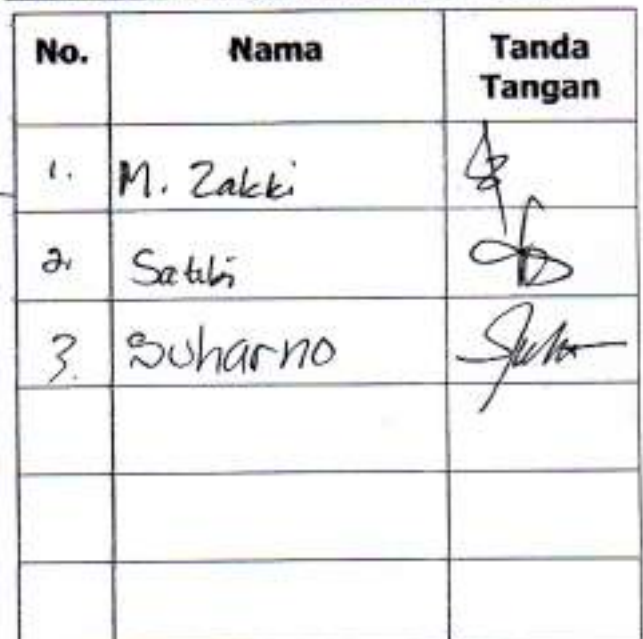 No. Nama Tanda Tangan
1. M. Zakki
2.
3. Suharno